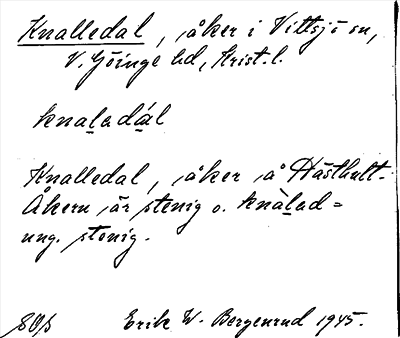 Knalledal, åker i Vittsjö sn,
V. Göinge hd, Krist. l.
knaladál
Knalledal, åker å Hästhult.
Åkern är stenig o. knàlad=
ung. stenig.
Erik W. Bergenrud 1945.